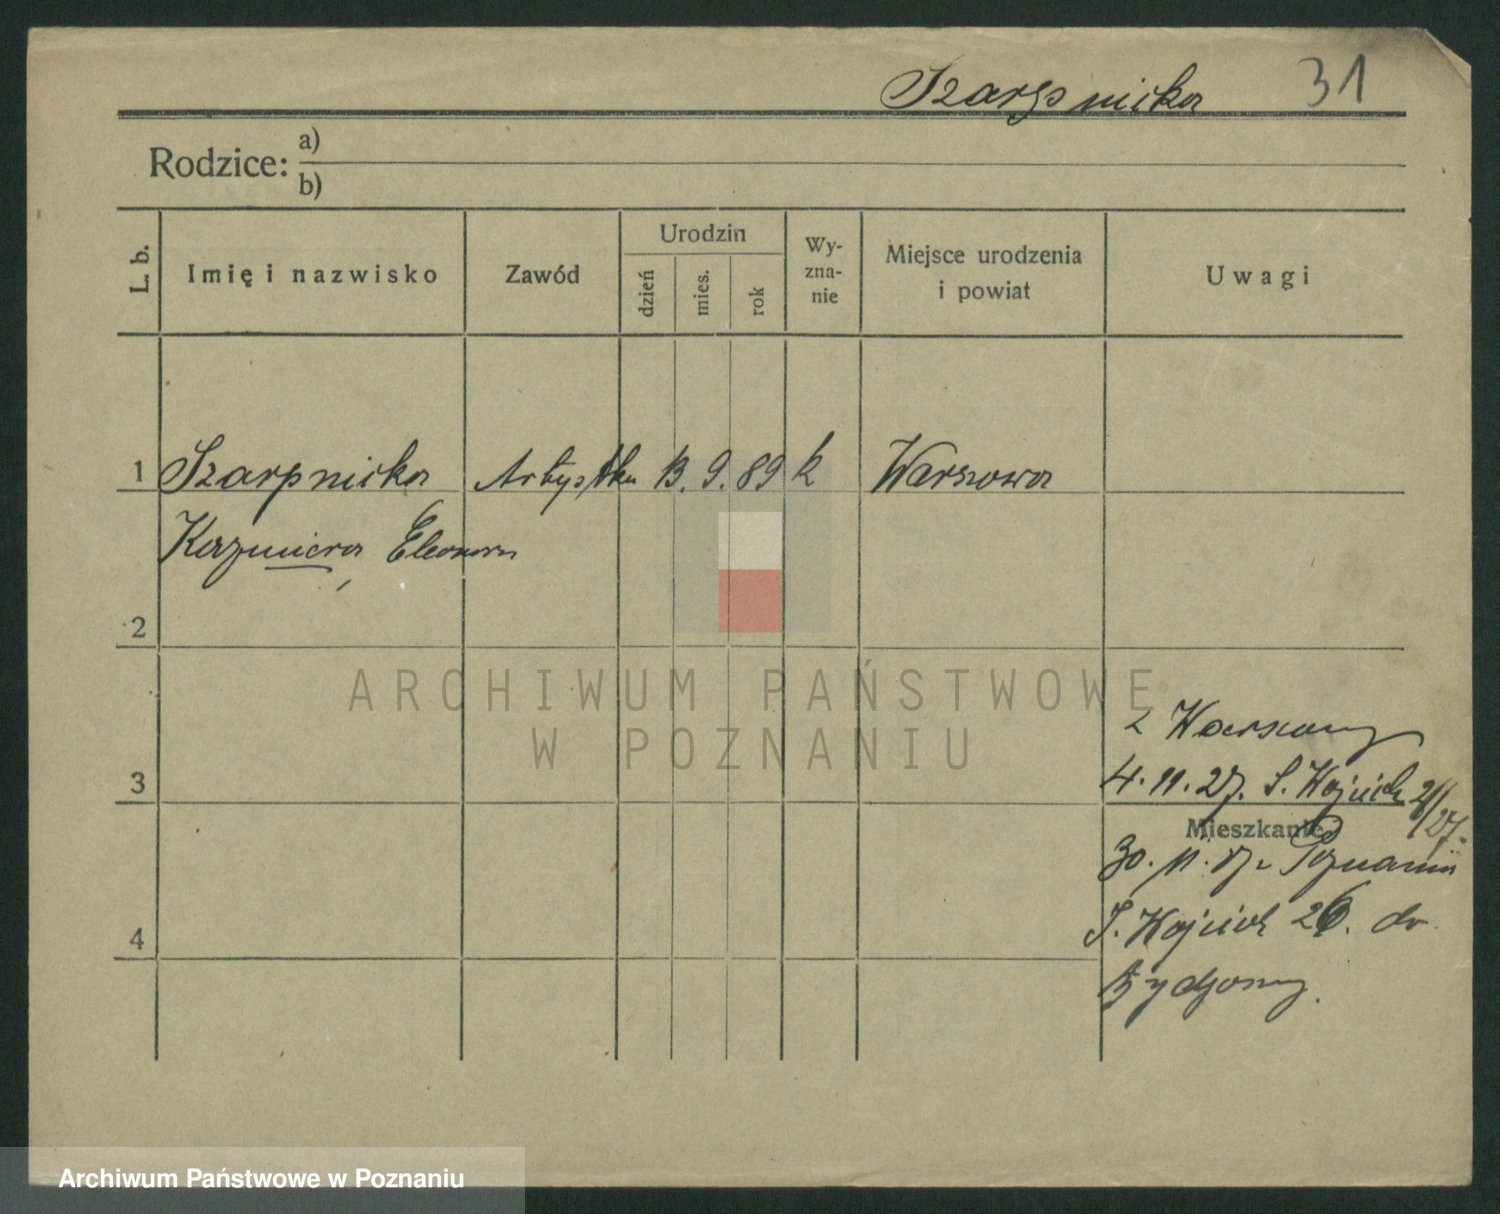 Szarpnicka 31
Rodzice: a)
b)
L. b. Imię i nazwisko Zawód Urodzin dzień mies. rok Wy-zna-nie Miejsce urodzenia i powiat Uwagi
1 Szarpnicka Artystka 13. 9. 89 k Warszawa
Kazimiera Eleonora
2
ARCHIWUM PAŃSTWOWE
W POZNANIU
z Warszawy
3 4. 11. 27. S. Wojciech
Mieszkanie
30. 11. 27 z Poznania
4 S. Wojciech 26. do
Bydgoszczy.
Archiwum Państwowe w Poznaniu